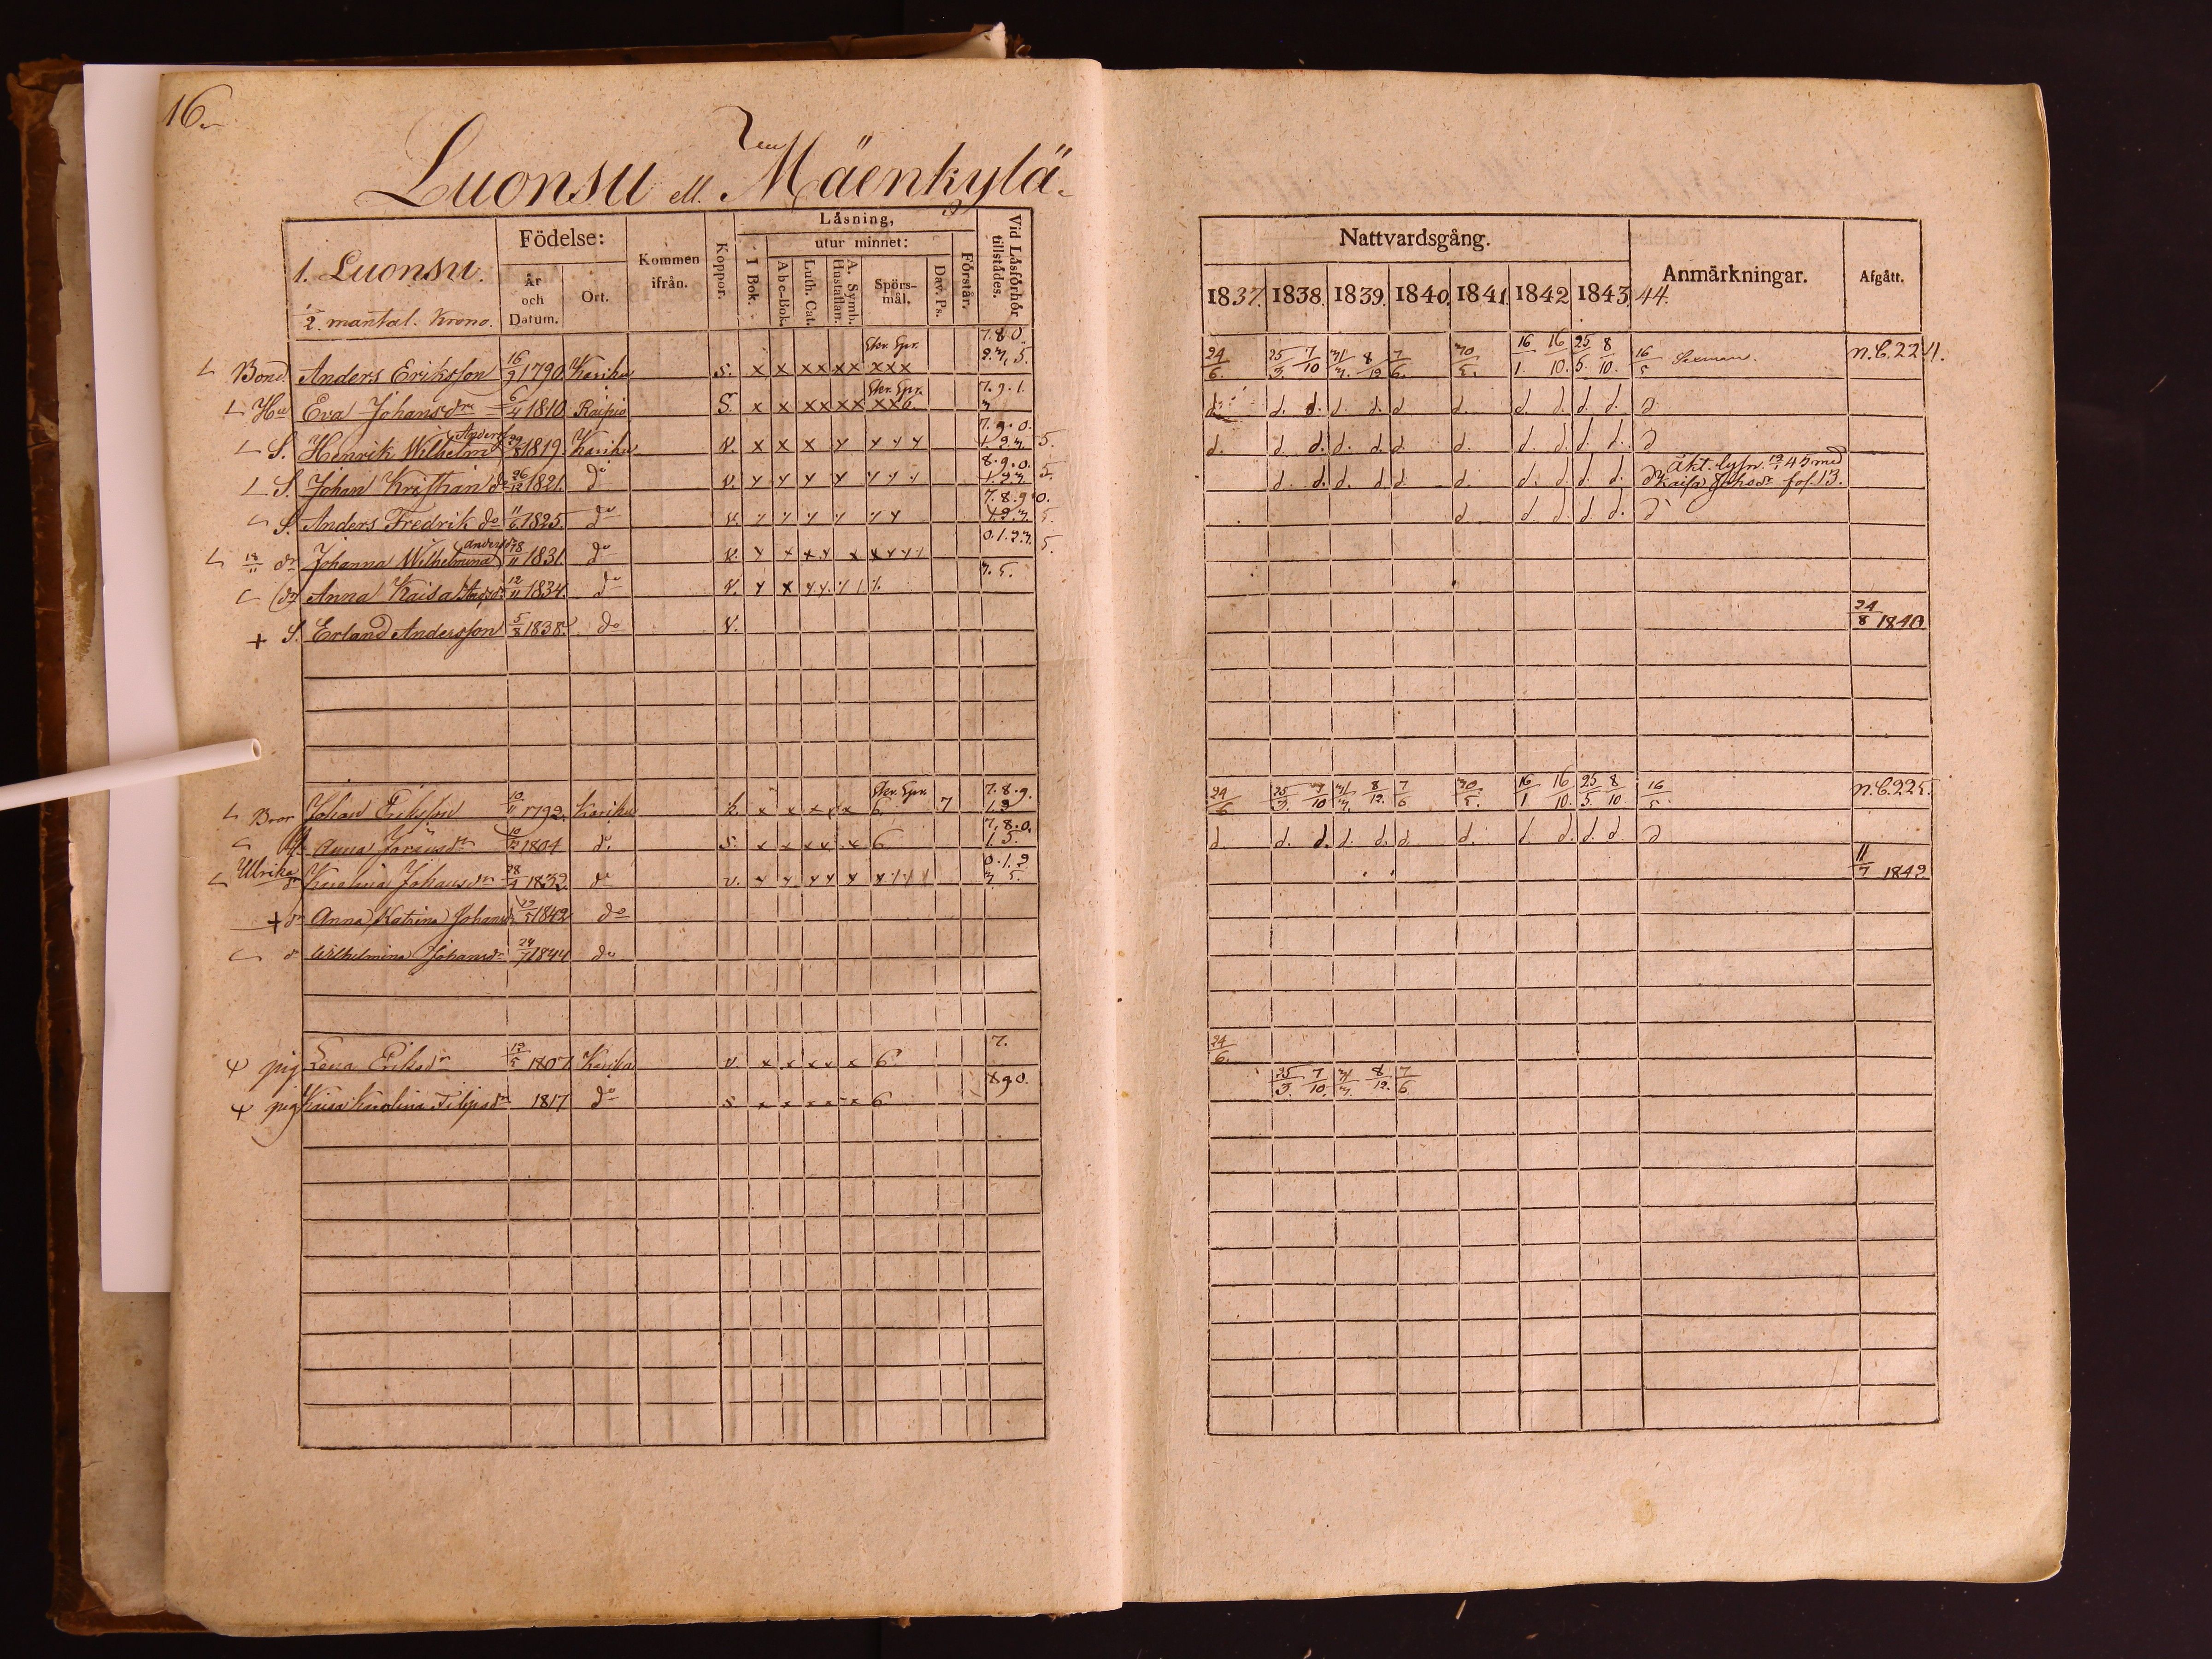 16.
Luonsu ell. Mäenkylä.
1. Luonsu.
2. mantal. Krono.
Födelse:
År och Datum.
Ort.
Kommen ifrån.
Koppor.
Läsning,
I Bok.
utur minnet:
Abc-Bok.
Luth. Cat.
A. Symb. Hustaflan.
Spörs-mål.
Dav. Ps.
Förstår.
Vid Läsförhör tillstådes.
Nattvardsgång.
1837. 1838. 1839. 1840. 1841. 1842 1843. 44.
Anmärkningar.
Afgått.
Bond. Anders Eriksson 16/9 1790 Kariku S. x x xx xx xxx 7.8.0. 2.3.5. 24/6. 25/3. 7/10 31/3. 8/12 7/6. 30/5. 16/1. 16/10. 25/5. 8/10. 16/5 Sexman. n.C.224.
Hu Eva Johansdr 6/4 1810 Raipio S. x x xx xx xx6. 7.9.1. 3 do d. d. d. d. d d. d. d. d. d. d
S. Henrik Wilhelm Anders 1819. Kariku V. x x x y y y y 7.9.0. 1.2.3. 5. d. d. d. d. d. d. d. d. d. d. d. d
S. Johan Kristian do 26/12 1821. do V. y y y y y y y 8.9.0. 1.2.3 5. d. d. d. d. d. d. d. d. d. d. d
Äkt. lysn. 19/1 45 med Kaisa Johsdr fol. 13.
S. Anders Fredrik do 11/6 1825. do V. y y y y y y 7.8.9.0. 1.2.3. 5. d d. d. d. d. d
18/11 dr Johanna Wilhelmina Andersdr 18/11 1831. do V. 0.1.2.3. 5.
dr Anna Kaisa Andsdr 12/11 1834. do V. 3.5.
+ S. Erland Andersson 5/8 1838. do V. 24/8 1840
Bror Johan Eriksson 10/11 1792. Kariku k. x x x x x 6. 7 7.8.9. 1.3 24/6 25/3. 7/10 31/3. 8/12. 7/6 30/5. 16/1 16/10. 25/5 8/10 16/5. n.C.225.
H. Anna Jöransdr 1804 do S. x x xx x 6 7.8.0. 1.5. d d. d. d. d. d. d. d. d. d. d d
Ulrika dr Karolina Johansdr 28/4 1832 do V. 0.1.2 3 5.
+ dr Anna Katrina Johansdr 1842 do 11/7 1842
d Wilhelmina Johansdr 24/7 1844 do
pig Lena Eriksdr 12/5 1807 Kariku V. x x x x x 6 7. 24/6.
pig Kaisa Karolina Filipsdr 1817 do S x x x x x 6 8.9.0. 25/3. 7/10. 31/3. 8/12. 7/6.